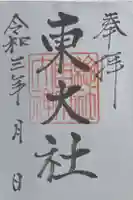 奉拝
東大社
令和三年 月 日